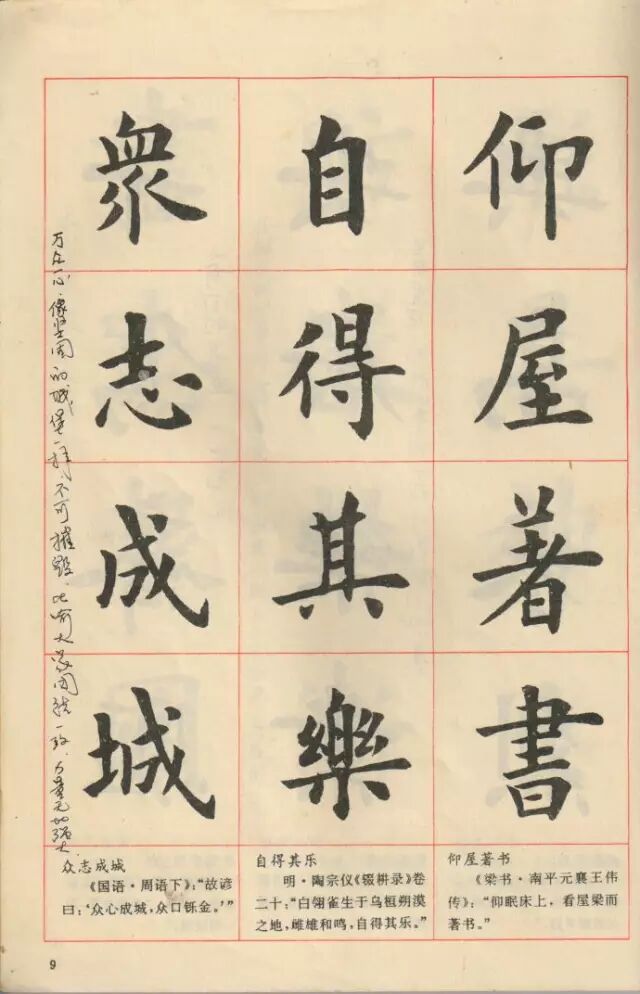 仰屋著書
自得其樂
衆志成城
万众一心,像坚固的城堡一样,不可摧毁.比喻大家团结一致,力量无比强大
仰屋著书
《梁书·南平元襄王伟
传》:“仰眠床上,看屋梁而
著书。”
自得其乐
明·陶宗仪《辍耕录》卷
二十:“白翎雀生于乌桓朔漠
之地,雌雄和鸣,自得其乐。”
众志成城
《国语·周语下》:“故谚
曰:‘众心成城,众口铄金。’”
9